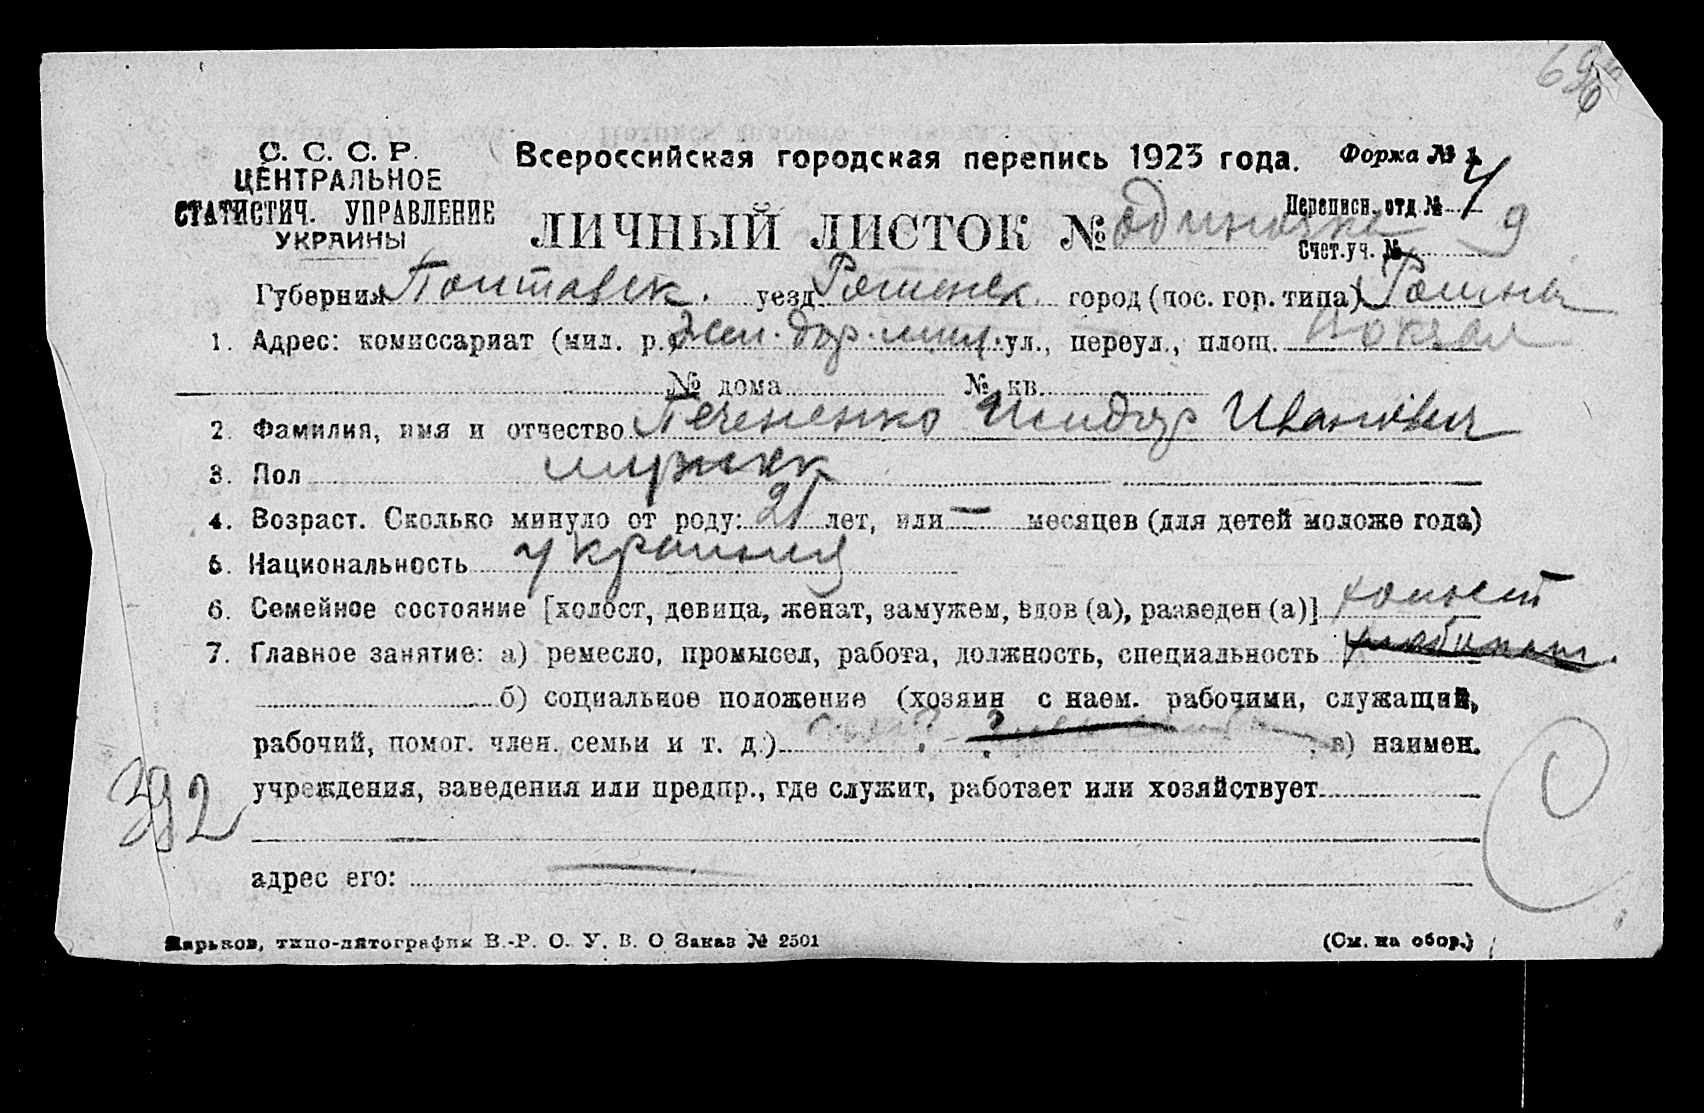 С. С. С. Р.
ЦЕНТРАЛЬНОЕ
СТАТИСТИЧ. УПРАВЛЕНИЕ
УКРАИНЫ
Всероссийская городская перепись 1923 года.
Форма № 1.
Переписн. отд № 4
ЛИЧНЫЙ ЛИСТОК № одиночка
Счет.уч. № 9
Губерния Полтавск. уезд Роменск город (пос. гор. типа) Ромна
1. Адрес: комиссариат (мил. р.) Жел. дор. мил. ул., переул., площ. Вокзал
№ дома № кв.
2. Фамилия, имя и отчество Печененко Исидор Иванович
3. Пол мужск
4. Возраст. Сколько минуло от роду: лет, или — месяцев (для детей моложе года)
5. Национальность украинец
6. Семейное состояние [холост, девица, женат, замужем, вдов (а), разведен (а)] холост
7. Главное занятие: а) ремесло, промысел, работа, должность, специальность
б) социальное положение (хозяин с наем. рабочими, служащий,
рабочий, помог. член. семьи и т. д.) в) наимен.
учреждения, заведения или предпр., где служит, работает или хозяйствует
392
адрес его:
Харьков, типо-литография В.-Р. О. У. В. О Заказ № 2501
(См. на обор.)